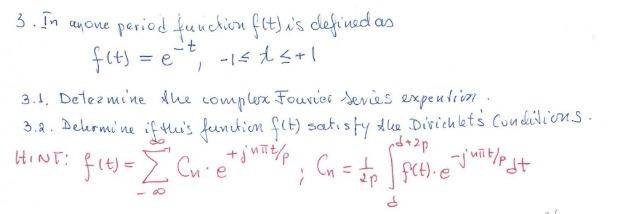 3. In anyone period function f(t) is defined as
f(t) = e^{-t}, -1 ≤ t ≤ +1
3.1. Determine the complex Fourier Series expention.
3.2. Determine if this function f(t) satisfy the Dirichlet's Conditions.
HINT: f(t) = ∑_{-∞}^{∞} Cn · e^{+jnπt/p} ; Cn = 1/2p ∫_{d}^{d+2p} f(t) · e^{-jnπt/p} dt